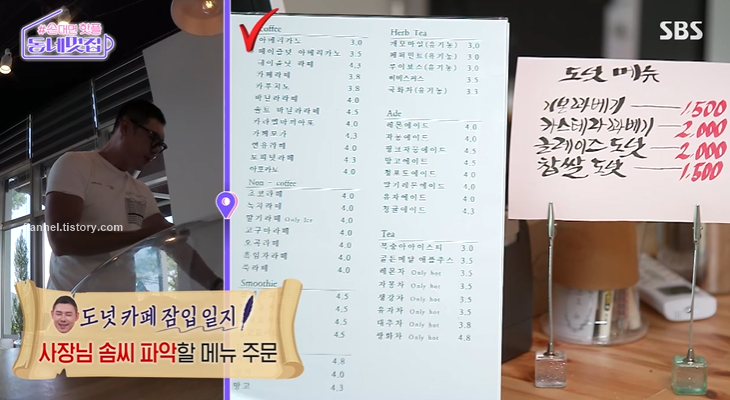 #손대면 핫플
동네멋집
SBS
Coffee
아메리카노 3.0
헤이즐넛 아메리카노 3.5
헤이즐넛 라떼 4.3
카페라떼 3.8
카푸치노 3.8
바닐라라떼 4.0
솔트 바닐라라떼 4.5
카라멜마키아또 4.0
카페모카 4.3
연유라떼 4.0
토피넛라떼 4.3
아포카노 4.0
Non - coffee
초코라떼 4.0
녹차라떼 4.0
딸기라떼 Only Ice 4.0
고구마라떼 4.0
오곡라떼 4.0
흑임자라떼 4.0
쑥라떼 4.0
Smoothie
4.5
4.5
4.5
4.8
4.0
망고 4.3
Herb Tea
캐모마일(유기농) 3.0
페퍼민트(유기농) 3.0
루이보스(유기농) 3.0
히비스커스 3.5
국화차(유기농) 3.3
Ade
레몬에이드 4.0
자몽에이드 4.0
핑크자몽에이드 4.5
망고에이드 4.5
청포도에이드 4.0
딸기레몬에이드 4.0
유자에이드 4.0
청귤에이드 4.0
Tea
복숭아아이스티 3.0
골든메달 애플주스 3.5
레몬차 Only hot 3.5
자몽차 Only hot 3.5
생강차 Only hot 3.5
유자차 Only hot 3.5
대추차 Only hot 3.8
쌍화차 Only hot 3.8
도넛 메뉴
기본꽈배기 1,500
카스테라꽈배기 2,000
글레이즈 도넛 2,000
찹쌀 도넛 1,500
hanhel.tistory.com
도넛 카페 잠입 일지
사장님 솜씨 파악할 메뉴 주문